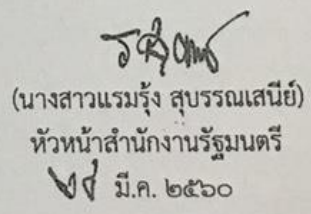 (นางสาวแรมรุ้ง สุบรรณเสนีย์)
หัวหน้าสำนักงานรัฐมนตรี
มี.ค. ๒๕๖๐